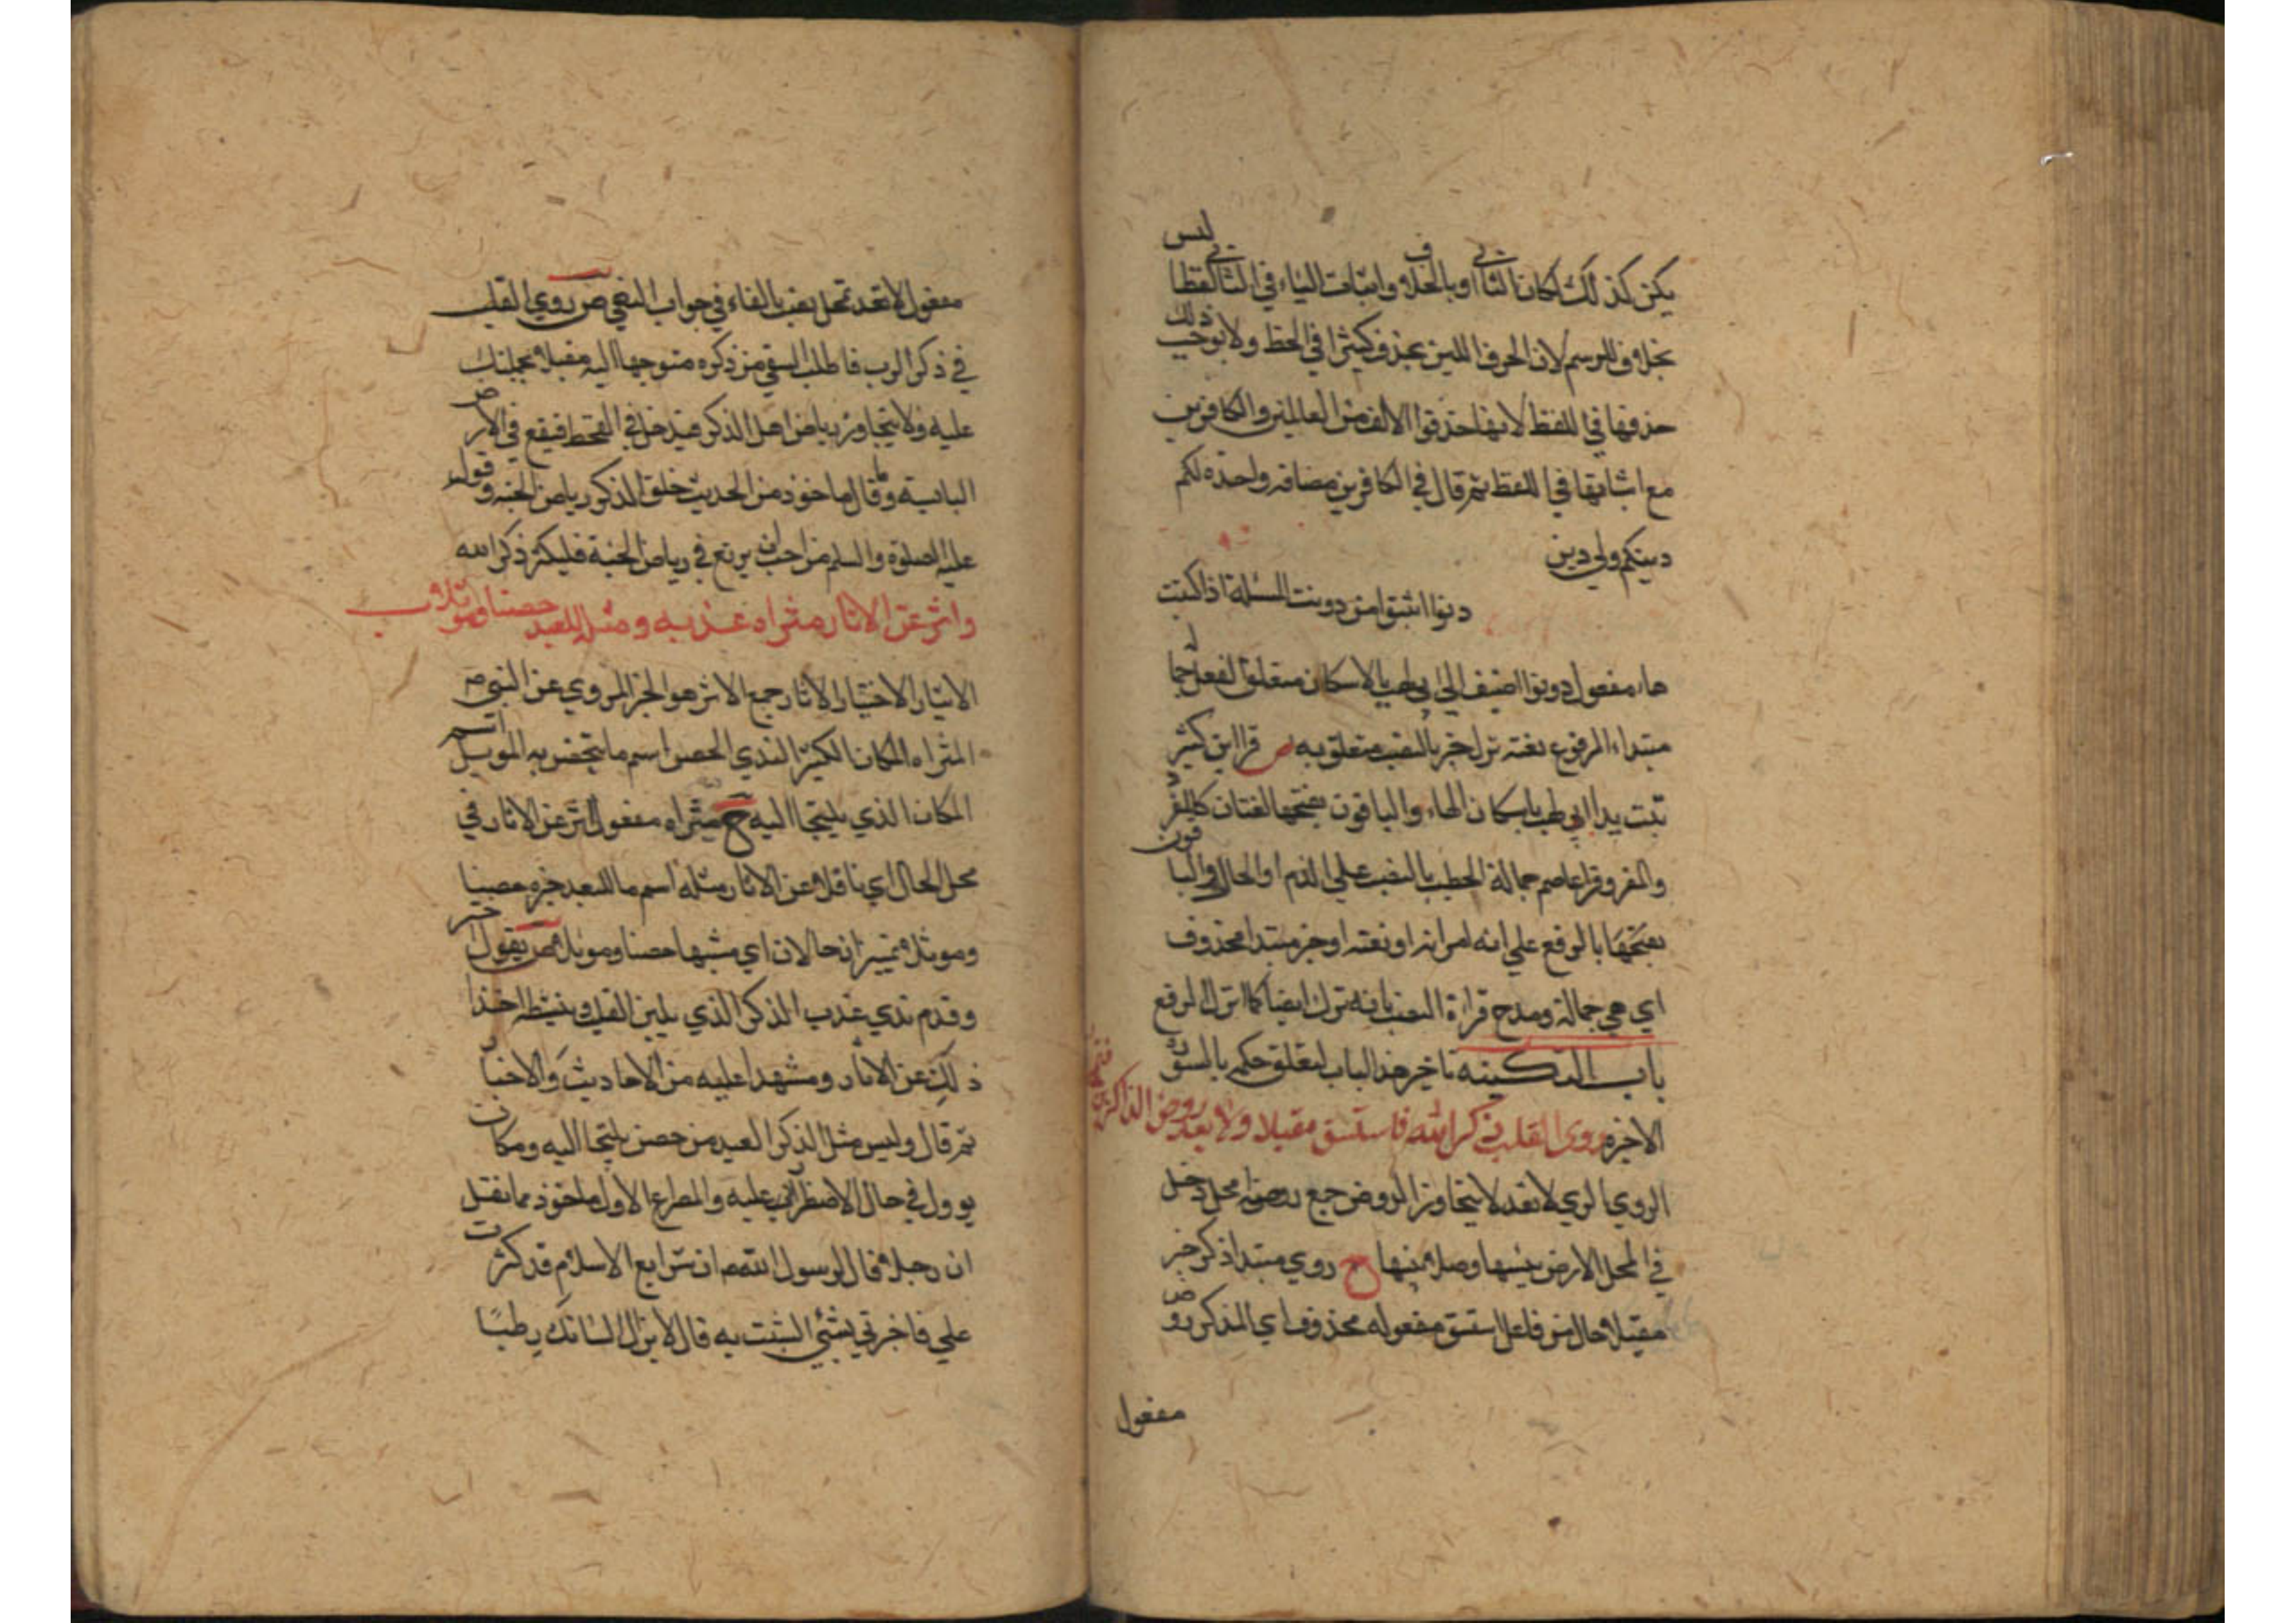 يكن كذلك لكان الثاني اوبالخلاف واثبات الياء في الثاني لفظا ليس
بخلاف للرسم لان الحرف اللين يحذف كثيرا في الخط ولا يوجب ذلك
حذفها في اللفظ لانها حذفوا الالف من العالمين والكافرين
مع اثباتها في اللفظ ثم قال في الكافرين مضافه واحدة لكم
دينكم ولي دين
دونوا من دونت المسئلة اذا كتبت
هاء مفعول دونوا اضيف الى ابي لهب بالاسكان متعلق لفعل
مبتداء المرفوع نعته نزل خبر بالنصب متعلق به ص قرا ابن كثير
تبت يدا ابي لهب باسكان الهاء والباقون بفتحها لغتان كالنهر
والنهر وقرا عاصم حمالة الحطب بالنصب على الذم او الحال والباقون
بالرفع على انه امراته او نعته او خبر مبتدا محذوف
اي هي حمالة ومدح قراءة النصب بانه نزل ايضا كما انزل الرفع
باب التكبير تاخير هذا الباب لتعلق حكمه بالسور
الاخيرة روى القلب ذكر الله فاستسق مقبلا ولا تعد روض الذاكرين فتمحلا
الروي الري لا تعد لا يتجاوز الروض جمع روضه محل دخل
في المحل الارض يبسها وصلا منها ح روي مبتدا ذكر خبر
مقبلا حال من فاعل استسق مفعوله محذوف اي الذكر روض
مفعول
مفعول لا تعد تمحل نصب بالفاء في جواب النهي ص روي القلب
في ذكر الرب فاطلب السقي من ذكره متوجها اليه مقبلا
عليه ولا يتجاوز رياض اهل الذكر فيدخل في القحط فيقع في الارض
اليابسة وقال ماخوذ من الحديث حلق الذكر رياض الجنة وقوله
عليه الصلوة والسلم من احب ان يرتع في رياض الجنة فليكثر ذكر الله
واثر عن الاثار مثراه عذبه وما مثله للعبد حصنا وموئلا
الايثار الاختيار الاثار جمع الاثر هو الخبر المروي عن النبي ص
المثراه المكان الكثير الندي الحصن اسم ما يتحصن به الموئل اسم
المكان الذي يلتجا اليه ح مثراه مفعول اثر عن الاثار في
محل الحال اي ناقلا عن الاثار مثله اسم ما للعبد خبره حصنا
وموئلا تميزان حالان اي مشبها حصنا وموئلا ص يقول خير
وقدم ندي عذب الذكر الذي يلين القلب وينشطه اخذا
ذلك عن الاثار ومشهدا عليه من الاحاديث والاخبار
ثم قال وليس مثل الذكر للعبد من حصن يلتجا اليه ومكان
يوول في حال الاضطرار عليه والمصراع الاول ماخوذ مما نقل
ان رجلا قال لرسول الله ص ان شرايع الاسلام قد كثرت
علي فاخبرني بشئي اتشبث به قال لا يزال لسانك رطبا